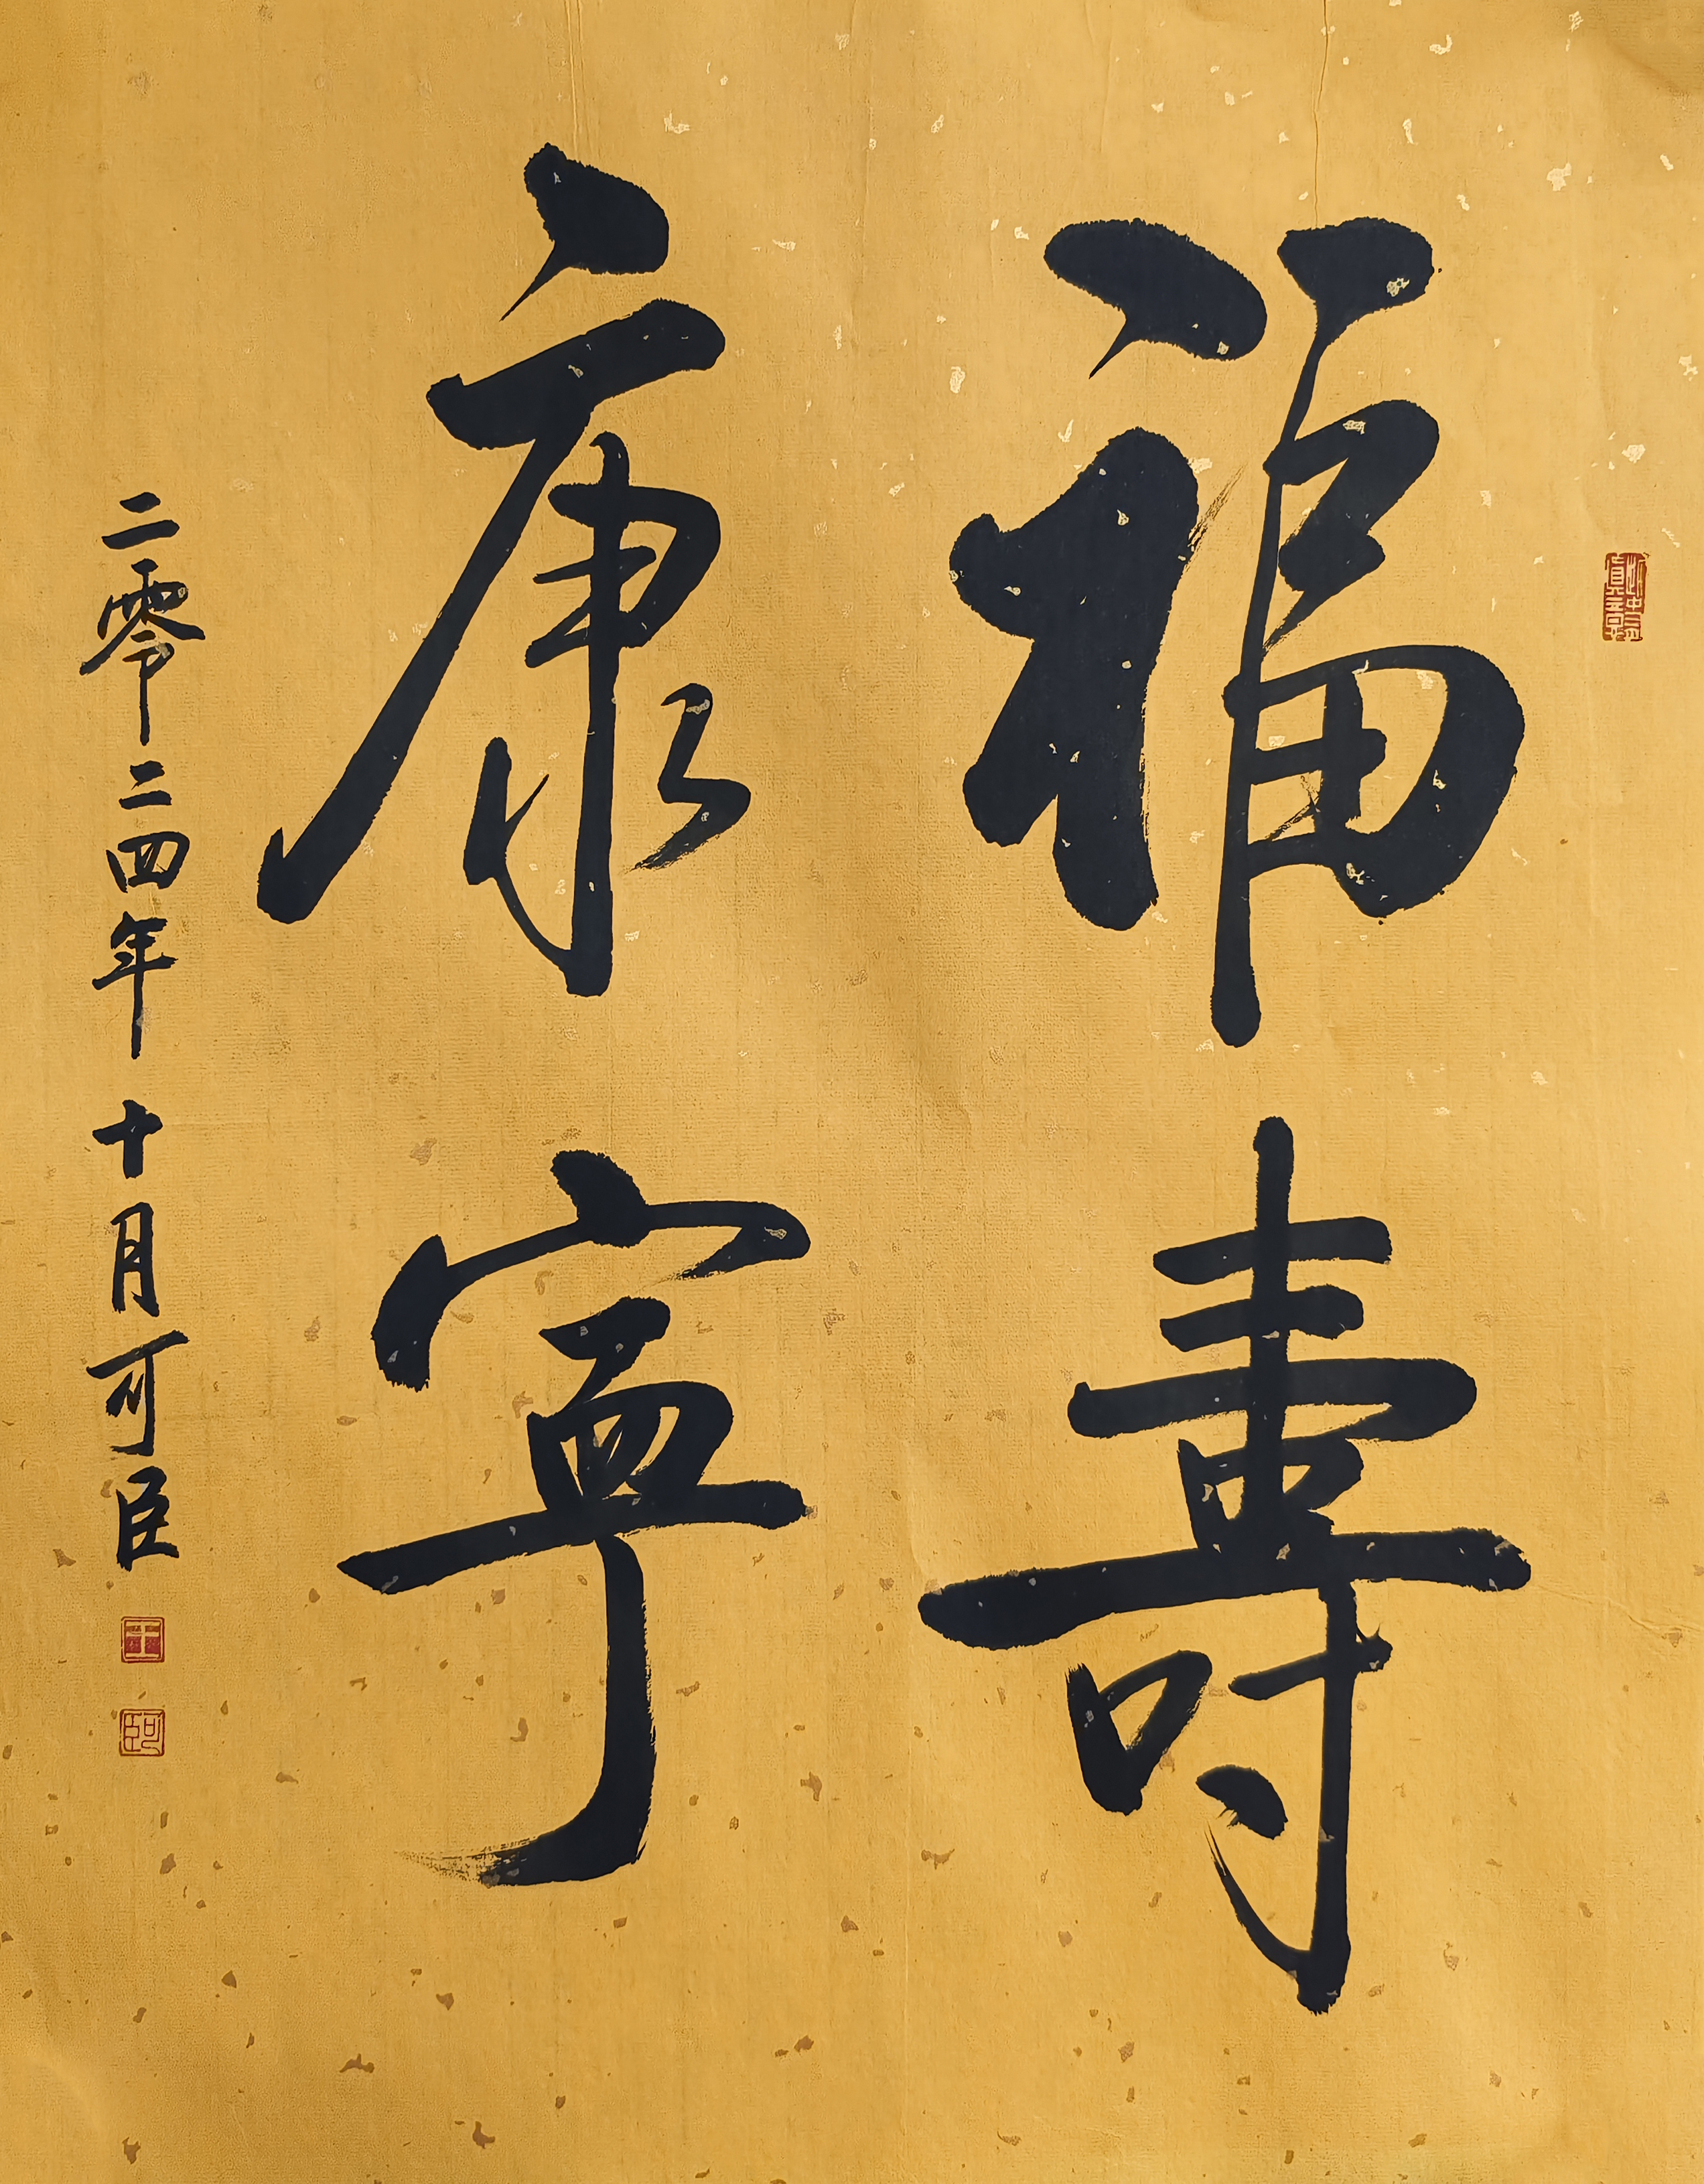 福壽
康寧
二零二四年十月可臣
王
可臣